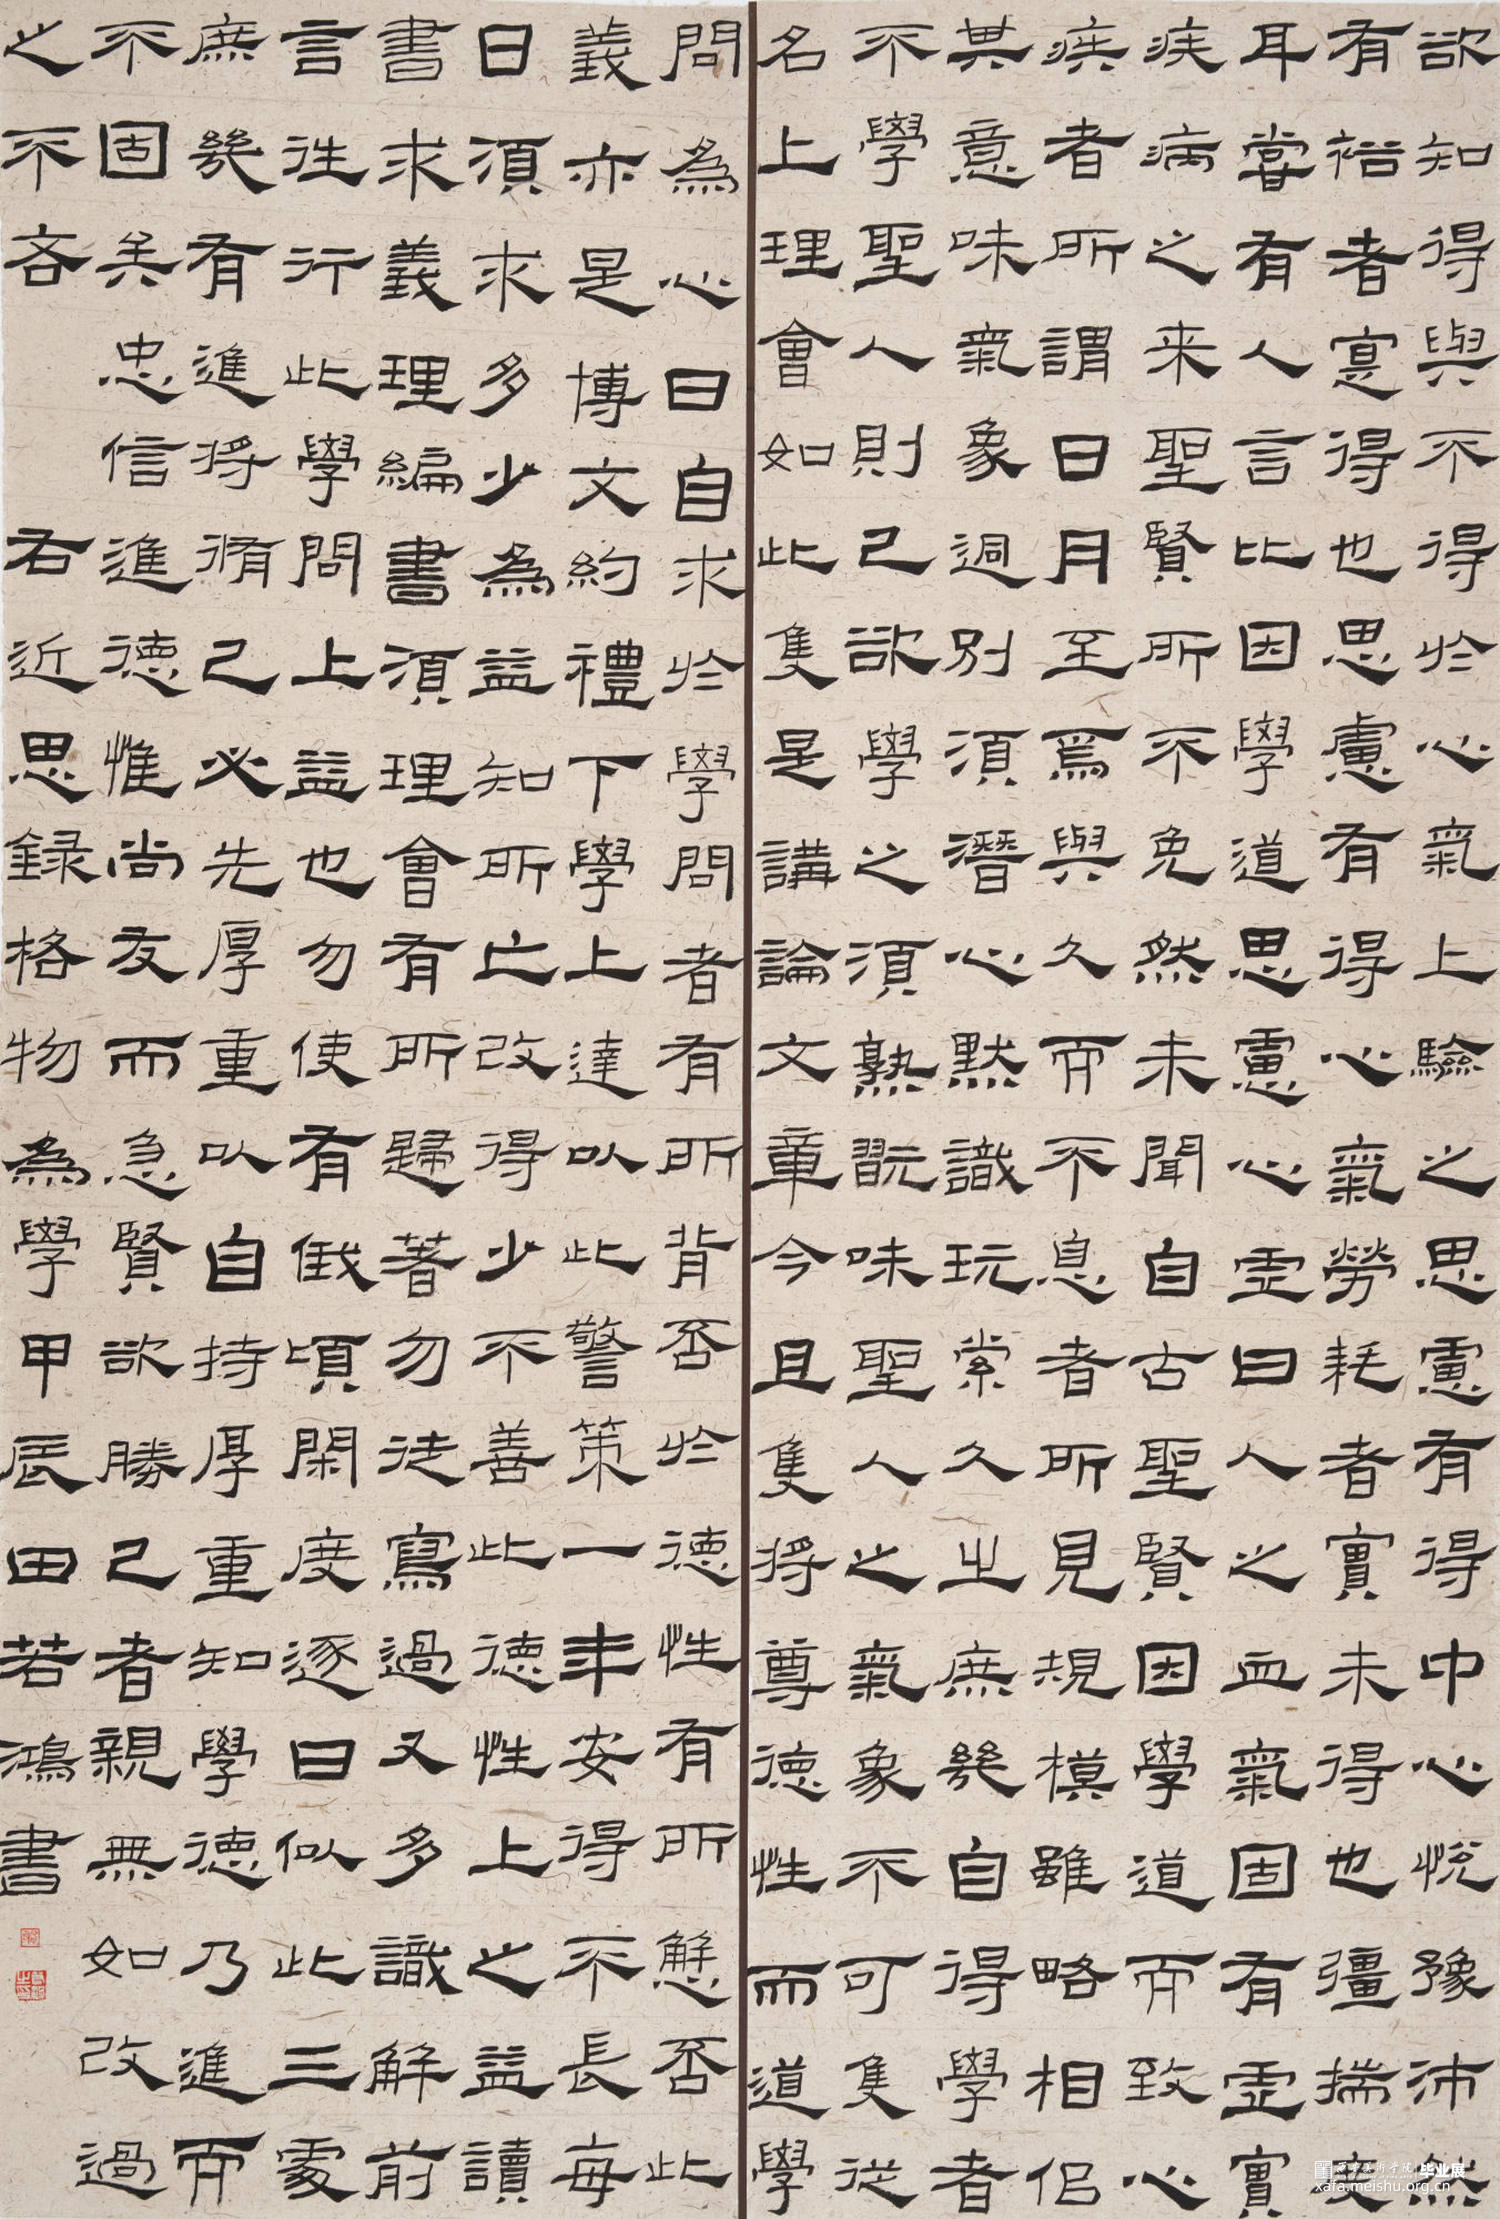 欲知得與不得於心氣上驗之思慮有得中心悅豫沛然
有裕者寔得也思慮有得心氣勞耗者實未得也彊揣度
耳嘗有人言比因學道思慮心虛曰人之血氣固有虛實
疾病之来聖賢所不免然未聞自古聖賢因學而致心
疾者所謂日月至焉與久而不息者所見規模雖略相佀
其意味氣象迥別須潛心默識玩索久之庶幾自得學者
不學聖人則己欲學之須熟翫味聖人之氣象不可隻從
名上理會如此隻是講論文章今且隻將尊德性而道學
問為心日自求於學問者有所背否於德性有所懈否此
義亦是博文約禮下學上達以此警策一年安得不長每
日須求多少為益知所亡改得少不善此德性上之益讀
書求義理編書須理會有所歸著勿徒寫過又多識解前
言往行此學問上益也勿使有俄頃閑度逐日似此三處
庶幾有進將脩己必先厚重以自持厚重知學德乃進而
不固矣忠信進德惟尚友而急賢欲勝己者親無如改過
之不吝 右近思録格物為學甲辰田若鴻書
毕业展
xafa.meishu.org.cn